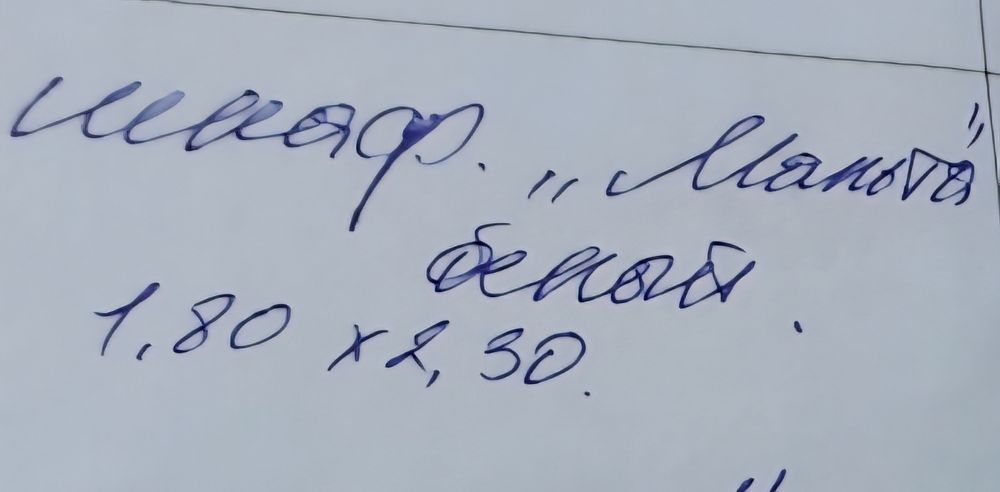 шкаф. „Мальта"
белый.
1,80 x 2,30.